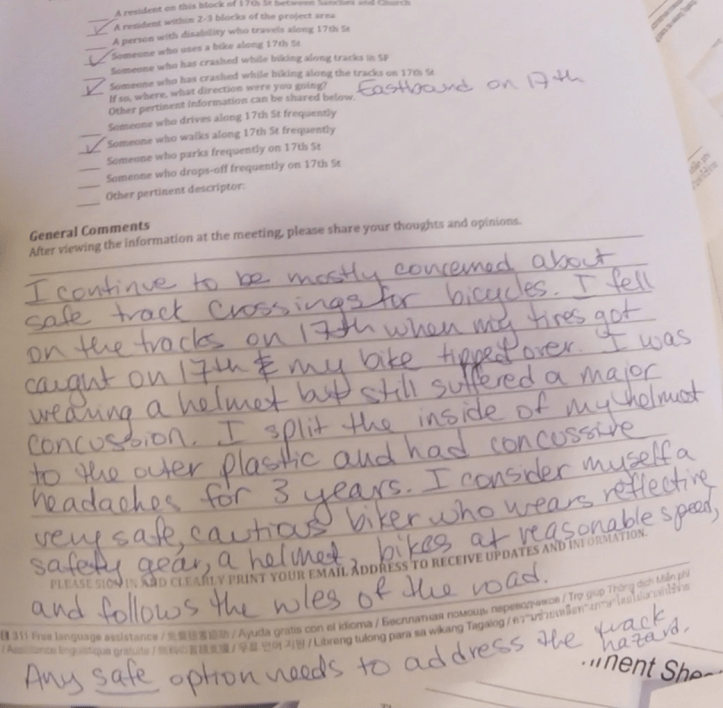 A resident on this block of 17th St between Sanchez and Church
✓ A resident within 2-3 blocks of the project area
A person with disability who travels along 17th St
✓ Someone who uses a bike along 17th St
Someone who has crashed while biking along tracks in SF
✓ Someone who has crashed while biking along the tracks on 17th St
If so, where, what direction were you going? Eastbound on 17th
Other pertinent information can be shared below.
Someone who drives along 17th St frequently
✓ Someone who walks along 17th St frequently
Someone who parks frequently on 17th St
Someone who drops-off frequently on 17th St
Other pertinent descriptor:
General Comments
After viewing the information at the meeting, please share your thoughts and opinions.
I continue to be mostly concerned about
safe track crossings for bicycles. I fell
on the tracks on 17th when my tires got
caught on 17th & my bike tipped over. I was
wearing a helmet but still suffered a major
concussion. I split the inside of my helmet
to the outer plastic and had concussive
headaches for 3 years. I consider myself a
very safe, cautious biker who wears reflective
safety gear, a helmet, bikes at reasonable speed,
PLEASE SIGN IN AND CLEARLY PRINT YOUR EMAIL ADDRESS TO RECEIVE UPDATES AND INFORMATION.
and follows the rules of the road.
311 Free language assistance / 免費語言協助 / Ayuda gratis con el idioma / Бесплатная помощь переводчиков / Trợ giúp Thông dịch Miễn phí
/ Assistance linguistique gratuite / 無料の言語支援 / 무료 언어 지원 / Libreng tulong para sa wikang Tagalog /
Any safe option needs to address the track
hazard.